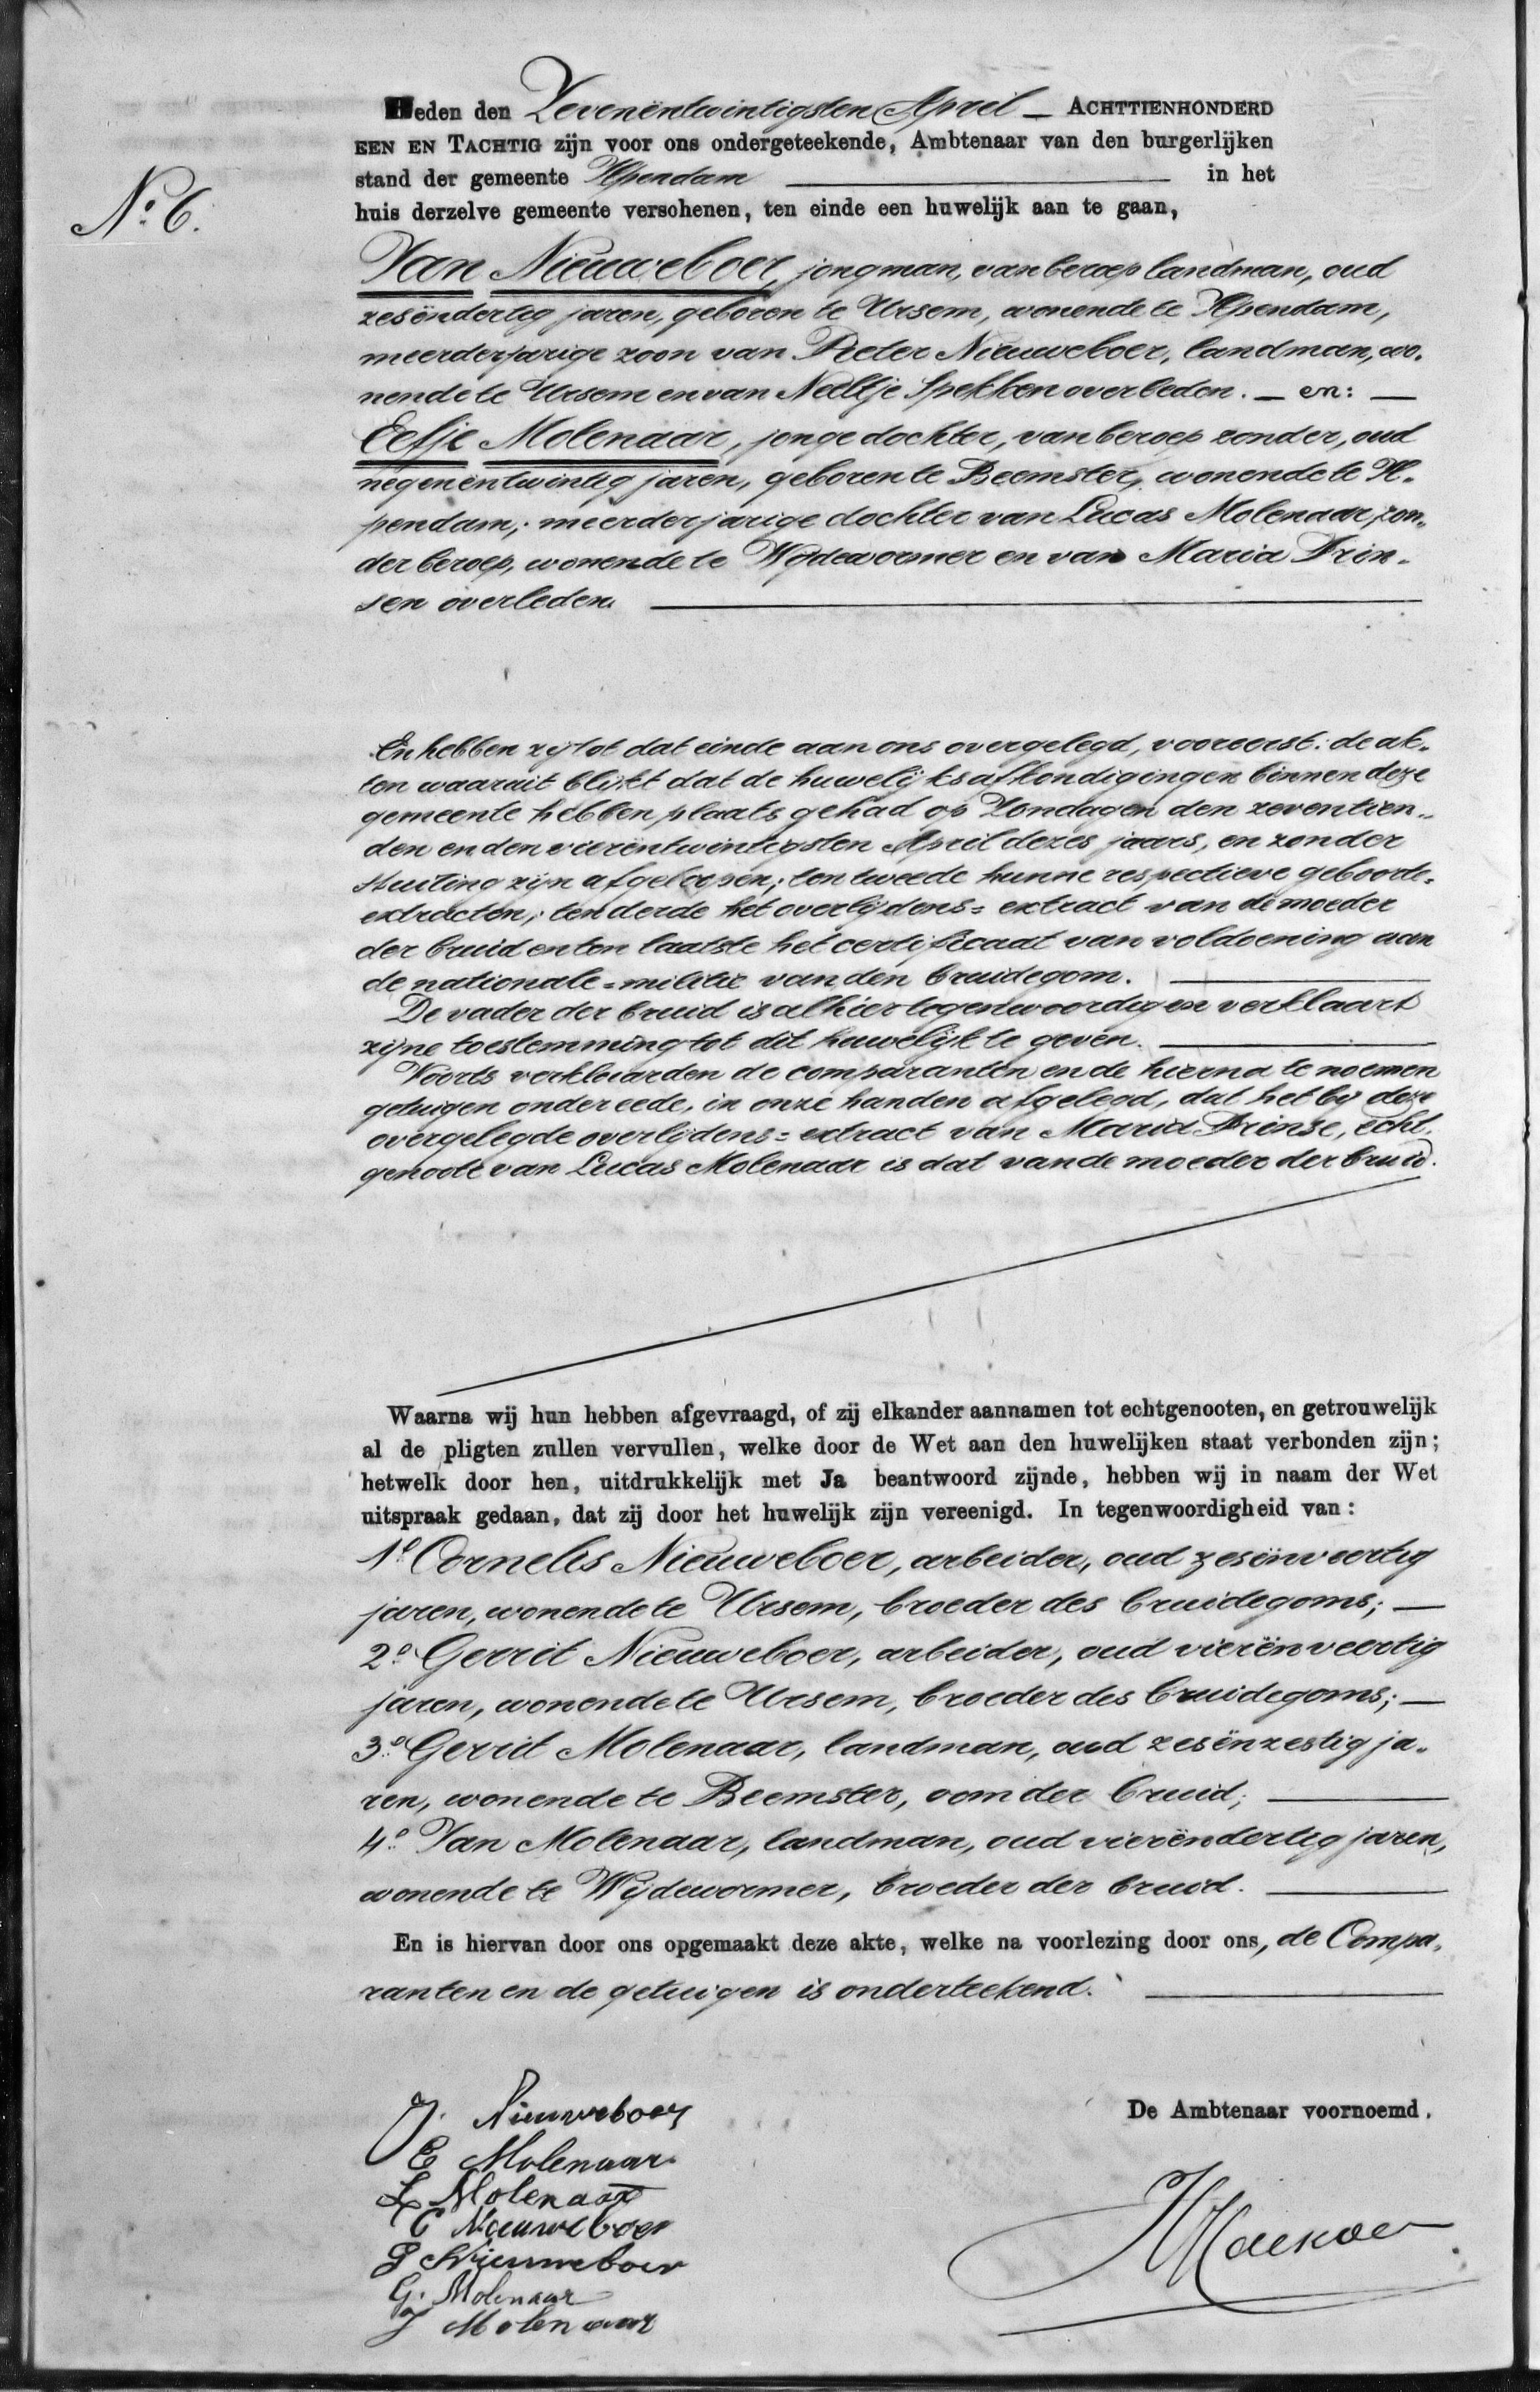 Heden den Zevenëntwintigsten April — ACHTTIENHONDERD
EEN EN TACHTIG zijn voor ons ondergeteekende, Ambtenaar van den burgerlijken
stand der gemeente Ilpendam in het
huis derzelve gemeente verschenen, ten einde een huwelijk aan te gaan,
No. 6.
Jan Nieuweboer, jongman, van beroep landman, oud
zesëndertig jaren, geboren te Ursem, wonende te Ilpendam,
meerderjarige zoon van Pieter Nieuweboer, landman, wo-
nende te Ursem en van Neeltje Spekken overleden. — en: —
Eefje Molenaar, jonge dochter, van beroep zonder, oud
negenëntwintig jaren, geboren te Beemster, wonende te Il-
pendam; meerderjarige dochter van Lucas Molenaar, zon-
der beroep, wonende te Wijdewormer en van Maria Prin-
sen overleden.
En hebben zij tot dat einde aan ons overgelegd, vooreerst: de ak-
ten waaruit blijkt dat de huwelijksafkondigingen binnen deze
gemeente hebben plaats gehad op Zondagen den zeventien-
den en den vierëntwintigsten April dezes jaars, en zonder
stuiting zijn afgeloopen; ten tweede hunne respectieve geboorte=
extracten; ten derde het overlijdens=extract van de moeder
der bruid en ten laatste het certificaat van voldoening aan
de nationale=militie van den bruidegom.
De vader der bruid is alhier tegenwoordig en verklaart
zijne toestemming tot dit huwelijk te geven.
Voorts verklaarden de comparanten en de hierna te noemen
getuigen onder eede, in onze handen afgelegd, dat het bij deze
overgelegde overlijdens=extract van Maria Prinse, echt-
genoote van Lucas Molenaar is dat van de moeder der bruid.
Waarna wij hun hebben afgevraagd, of zij elkander aannamen tot echtgenooten, en getrouwelijk
al de pligten zullen vervullen, welke door de Wet aan den huwelijken staat verbonden zijn;
hetwelk door hen, uitdrukkelijk met Ja beantwoord zijnde, hebben wij in naam der Wet
uitspraak gedaan, dat zij door het huwelijk zijn vereenigd. In tegenwoordigheid van:
1o Cornelis Nieuweboer, arbeider, oud zesënveertig
jaren, wonende te Ursem, broeder des bruidegoms; —
2o Gerrit Nieuweboer, arbeider, oud vierënveertig
jaren, wonende te Ursem, broeder des bruidegoms; —
3o Gerrit Molenaar, landman, oud zesënzestig ja-
ren, wonende te Beemster, oom der bruid;
4o Jan Molenaar, landman, oud vierëndertig jaren,
wonende te Wijdewormer, broeder der bruid.
En is hiervan door ons opgemaakt deze akte, welke na voorlezing door ons, de Compa-
ranten en de getuigen is onderteekend.
J. Nieuweboer
E Molenaar
L Molenaar
C Nieuweboer
G Nieuweboer
G. Molenaar
J Molenaar
De Ambtenaar voornoemd.